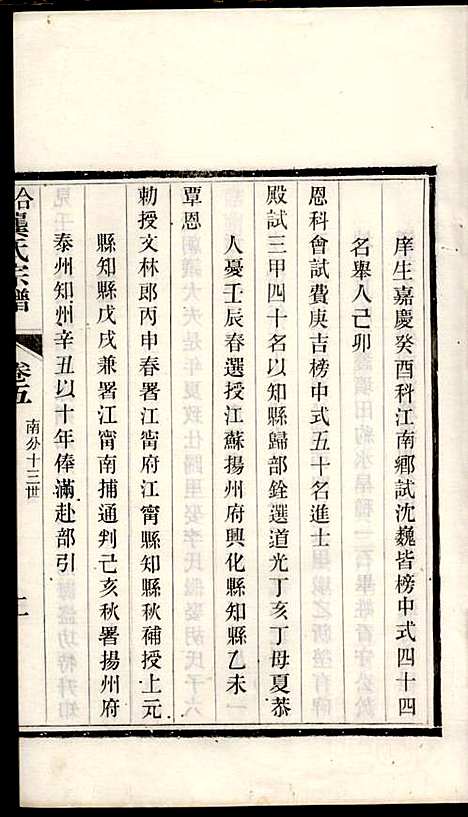 庠生嘉慶癸酉科江南鄉試沈巍皆榜中式四十四
名舉人己卯
恩科會試費庚吉榜中式五十名進士
殿試三甲四十名以知縣歸部銓選道光丁亥丁母夏恭
人憂壬辰春選授江蘇揚州府興化縣知縣乙未
覃恩
勅授文林郎丙申春署江甯府江甯縣知縣秋補授上元
縣知縣戊戌兼署江甯南捕通判己亥秋署揚州府
泰州知州辛丑以十年俸滿赴部引
合龔氏宗譜
卷五
南分十三世